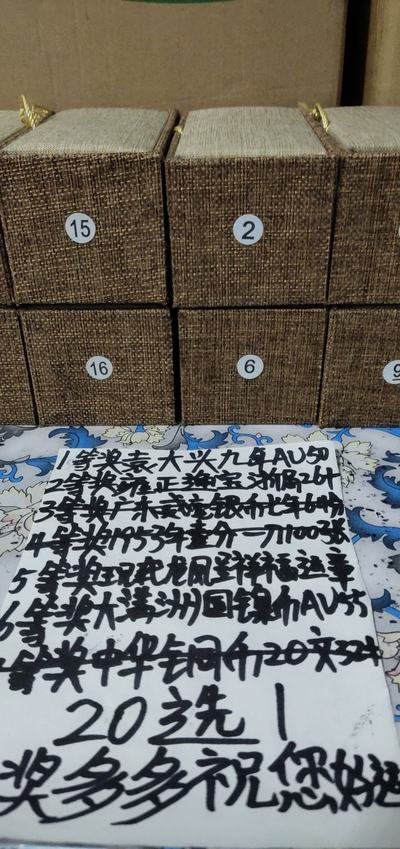 15
2
16
6
9
1等奖袁大头九年AU50
2等奖雍正 宝浙局264
3等奖广东 银币 年 分
4等奖1953年壹分一刀100张
5等奖现代龙凤呈祥福运章
6等奖大满洲国镍币AU55
等奖中华 币20文324
20选1
奖多多祝您好运